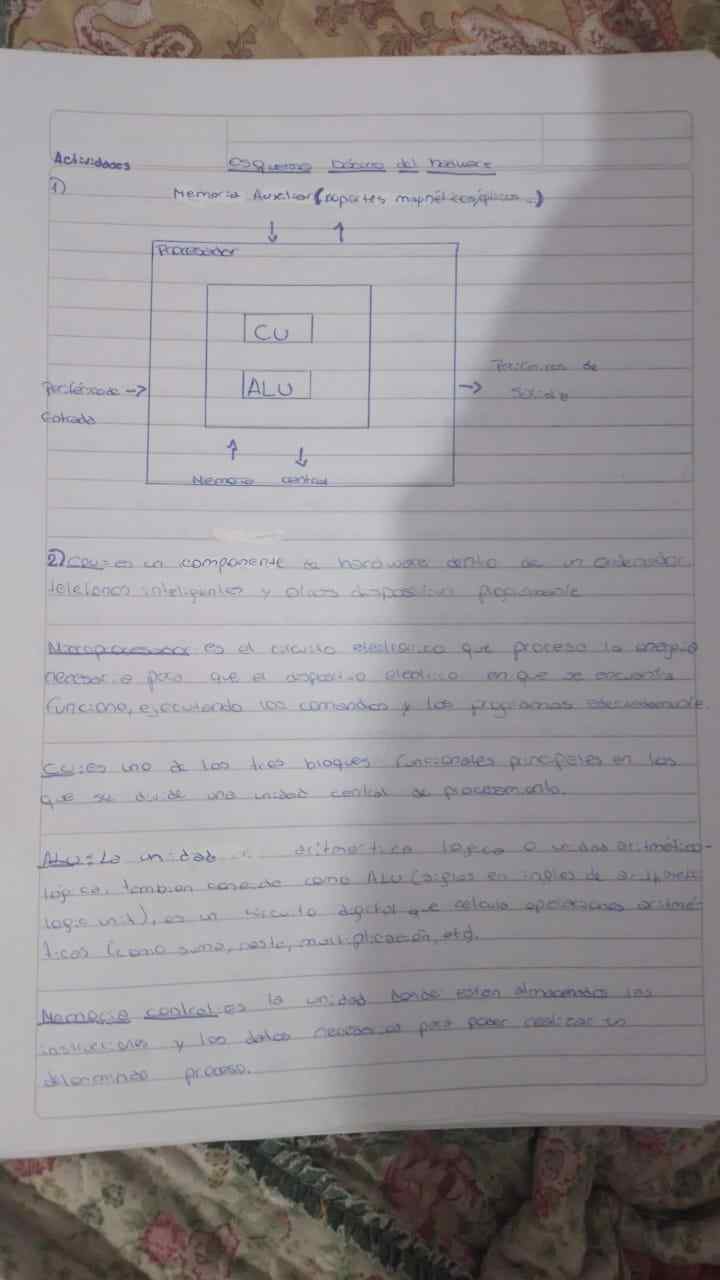 Actividades
esquema básico del hardware
1)
Memoria Auxiliar (soportes magnéticos, ópticos...)
↓ ↑
Procesador
CU
ALU
Periféricos de →
Entrada
→ Periféricos de
Salida
↑ ↓
Memoria central
2) CPU: es un componente de hardware dentro de un ordenador,
telefonos inteligentes y otros dispositivos programable
Microprocesador es el circuito electronico que procesa la energia
necesaria para que el dispositivo electrico en que se encuentra
funcione, ejecutando los comandos y los programas adecuadamente.
CU: es uno de los tres bloques funcionales principales en los
que se divide una unidad central de procesamiento.
ALU: La unidad aritmetica logica o unidad aritmético-
lógica, tambien conocida como ALU (siglas en ingles de arithmetic
logic unit), es un circuito digital que calcula operaciones aritmé
ticas (como suma, resta, multiplicación, etc).
Memoria central: es la unidad donde estan almacenados las
instrucciones y los datos necesarios para poder realizar un
determinado proceso.